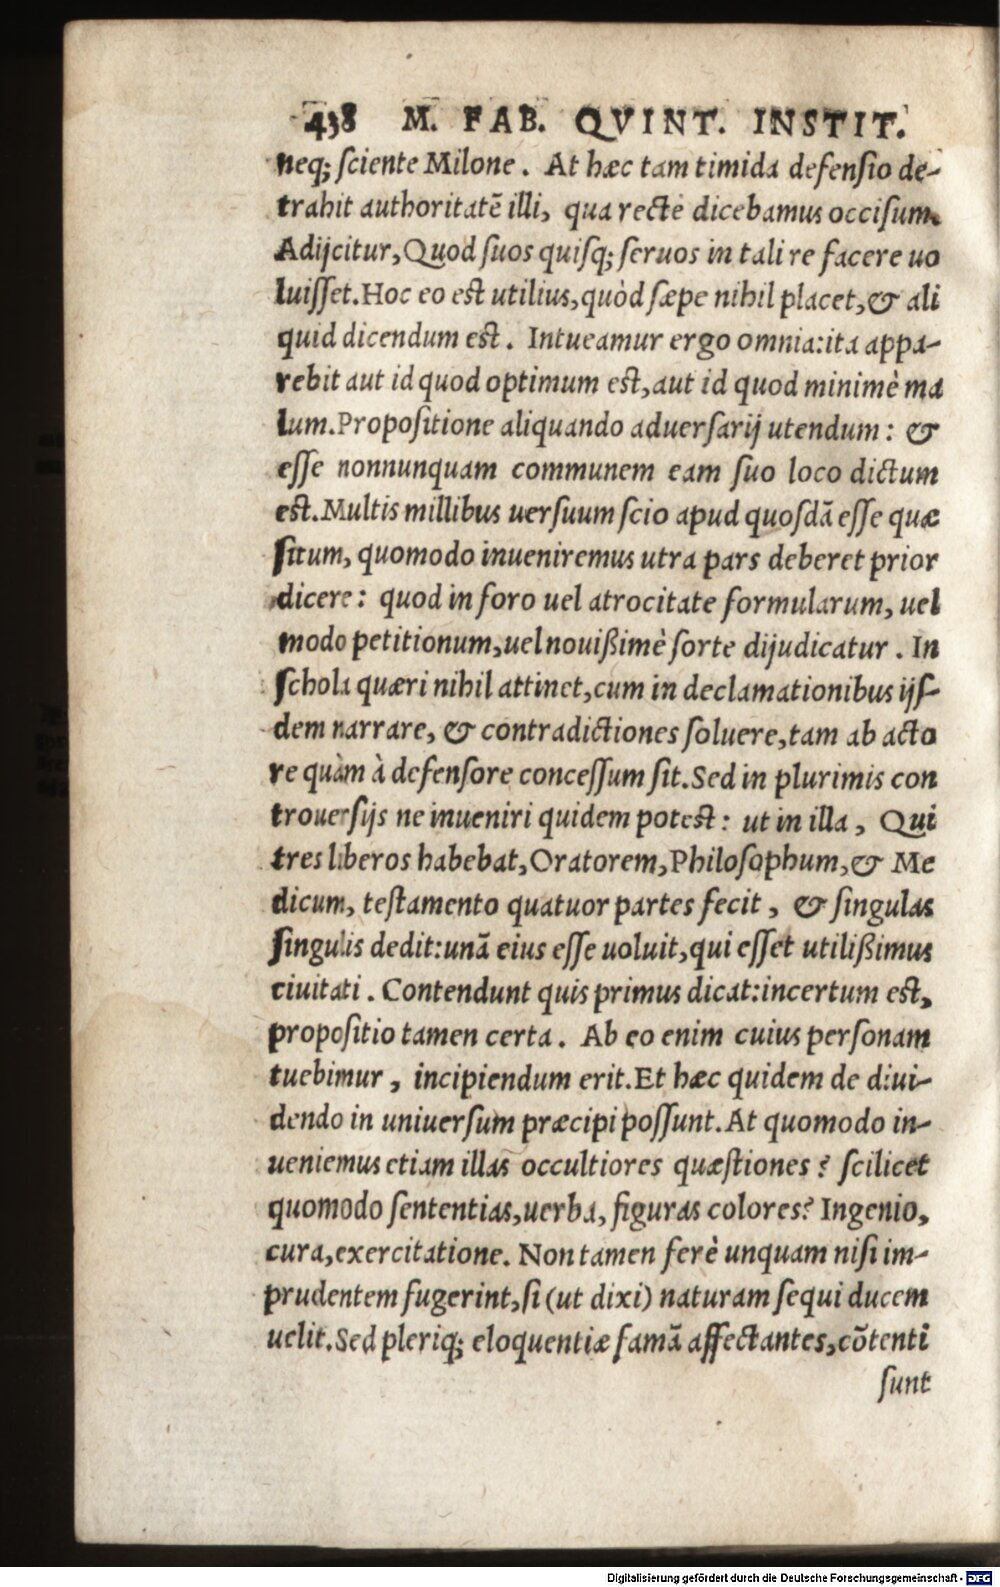 438 M. FAB. QVINT. INSTIT.
neq; sciente Milone. At hæc tam timida defensio de-
trahit authoritatē illi, qua rectè dicebamus occisum.
Adijcitur, Quod suos quisq; seruos in tali re facere uo
luisset. Hoc eo est utilius, quòd sæpe nihil placet, & ali
quid dicendum est. Intueamur ergo omnia: ita appa-
rebit aut id quod optimum est, aut id quod minimè ma
lum. Propositione aliquando aduersarij utendum: &
esse nonnunquam communem eam suo loco dictum
est. Multis millibus uersuum scio apud quosdā esse quæ
situm, quomodo inueniremus utra pars deberet prior
dicere: quod in foro uel atrocitate formularum, uel
modo petitionum, uel nouißimè sorte dijudicatur. In
schola quæri nihil attinet, cum in declamationibus ijs-
dem narrare, & contradictiones soluere, tam ab acto
re quàm à defensore concessum sit. Sed in plurimis con
trouersijs ne inueniri quidem potest: ut in illa, Qui
tres liberos habebat, Oratorem, Philosophum, & Me
dicum, testamento quatuor partes fecit, & singulas
singulis dedit: unā eius esse uoluit, qui esset utilißimus
ciuitati. Contendunt quis primus dicat: incertum est,
propositio tamen certa. Ab eo enim cuius personam
tuebimur, incipiendum erit. Et hæc quidem de diui-
dendo in uniuersum præcipi possunt. At quomodo in-
ueniemus etiam illas occultiores quæstiones? scilicet
quomodo sententias, uerba, figuras colores? Ingenio,
cura, exercitatione. Non tamen ferè unquam nisi im-
prudentem fugerint, si (ut dixi) naturam sequi ducem
uelit. Sed pleriq; eloquentiæ famā affectantes, cōtenti
sunt
Digitalisierung gefördert durch die Deutsche Forschungsgemeinschaft - DFG